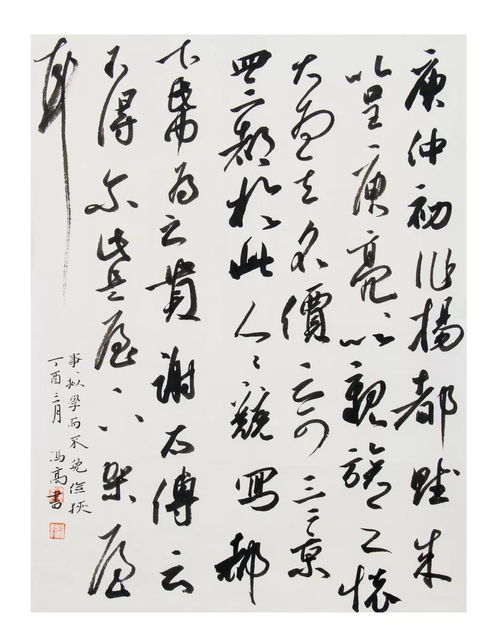 庾仲初作揚都賦成
以呈庾亮以親族之懷
大為其名價云可三二京
四三都於此人〻競寫都
下紙為之貴謝太傅云
不得尔此是屋下架屋
耳
事〻擬學而不免儉狹
丁酉三月 馮高書